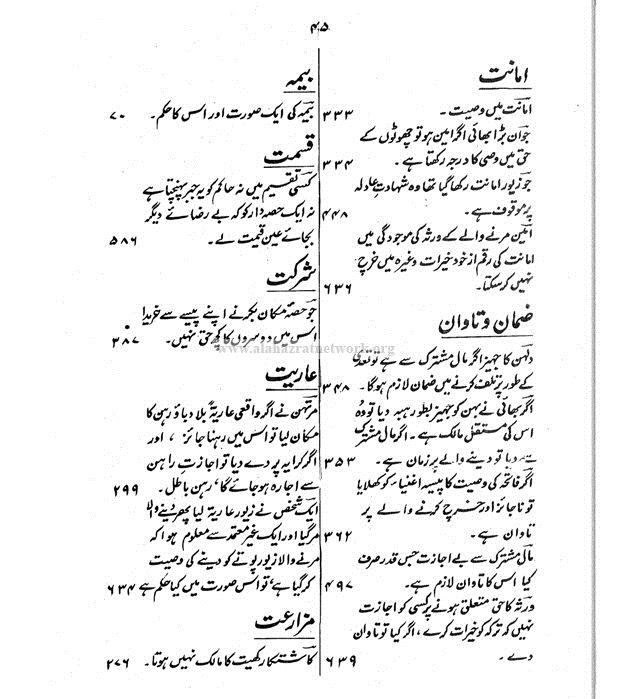 ۴۵
امانت
امانت میں وصیت۔ ۳۳۳
جوان بڑا بھائی اگر امین ہو تو چھوٹوں کے
حق میں وصی کا درجہ رکھتا ہے۔ ۳۳۴
جو زیور امانت رکھا گیا تھا وہ شہادت عادلہ
پر موقوف ہے۔ ۴۴۸
امین مرنے والے کے ورثہ کی موجودگی میں
امانت کی رقم از خود خیرات وغیرہ میں خرچ
نہیں کرسکتا۔ ۶۳۶
ضمان و تاوان
دلہن کا جہیز اگر مال مشترک سے ہے تو تعدی
کے طور پر تلف کرنے میں ضمان لازم ہوگا۔ ۳۴۸
اگر بھائی نے بہن کو جہیز بطور ہبہ دیا تو وہ
اس کی مستقل مالک ہے۔ اگر مال مشترک
سے دیا تو دینے والے پر زمان ہے۔ ۳۵۳
اگر فاتحہ کی وصیت کا پیسہ اغنیاء کو کھلایا
تو ناجائز اور خرچ کرنے والے پر
تاوان ہے۔ ۳۶۲
مال مشترک سے بے اجازت جس قدر صرف
کیا اس کا تاوان لازم ہے۔ ۴۹۷
ورثہ کا حق متعلق ہونے پر کسی کو اجازت
نہیں کہ ترکہ کو خیرات کرے، اگر کیا تو تاوان
دے۔ ۶۳۹
بیمہ
بیمہ کی ایک صورت اور اس کا حکم۔ ۷۰
قسمت
کسی تقسیم میں نہ حاکم کو یہ جبر پہنچتا ہے
نہ ایک حصہ دار کو کہ بے رضائے دیگر
بجائے عین قیمت لے۔ ۵۸۶
شرکت
جو حصۂ مکان بکر نے اپنے پیسے سے خریدا
اس میں دوسروں کا کچھ حق نہیں۔ ۳۸۷
عاریت
مرتہن نے اگر واقعی عاریۃً بلا دباؤ رہن کا
مکان لیا تو اس میں رہنا جائز، اور
اگر کرایہ پر دے دیا تو اجازت راہن
سے اجارہ ہوجائے گا، رہن باطل۔ ۲۹۹
ایک شخص نے زیور عاریۃ لیا پھر دینے والا
مرگیا اور ایک غیر معتمد سے معلوم ہوا کہ
مرنے والا زیور پوتے کو دینے کی وصیت
کر گیا ہے، تو اس صورت میں کیا حکم ہے ۶۳۴
مزارعت
کاشتکار کھیت کا مالک نہیں ہوتا۔ ۲۷۶
www.alahazratnetwork.org